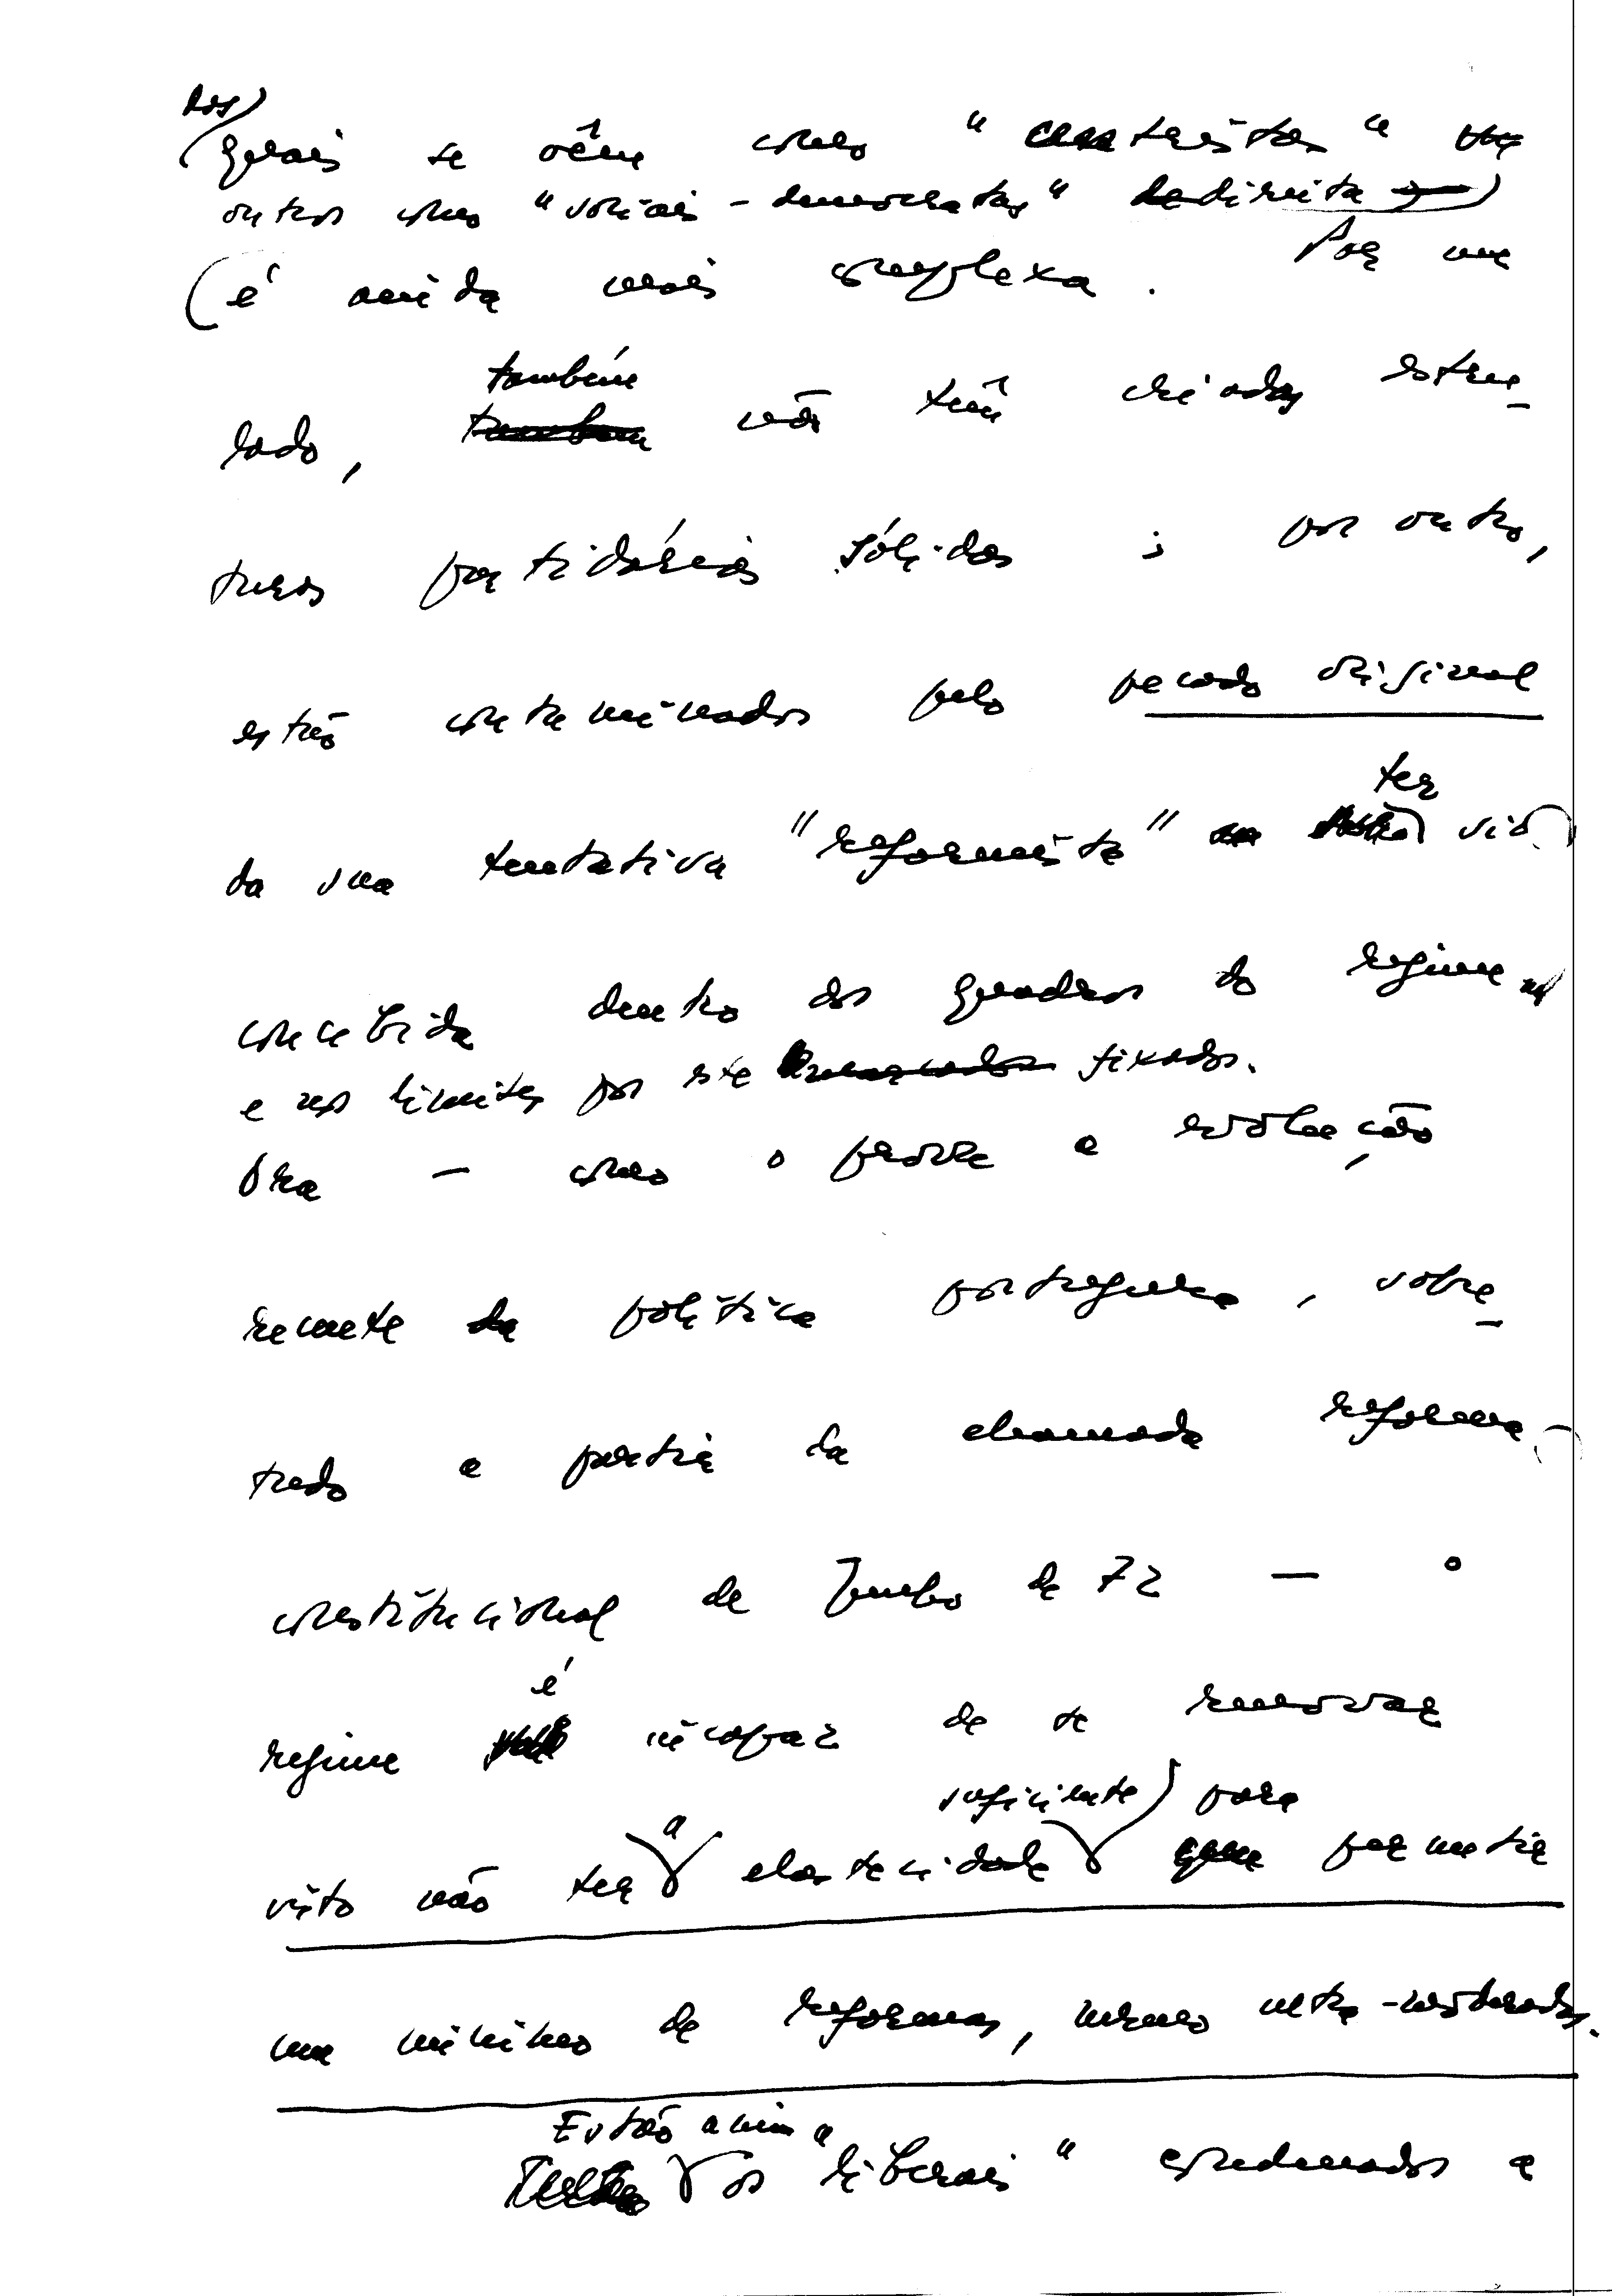 dos)
(quais se vêem como "centristas" ou
outros como "sociais-democratas" de direita)
(é ainda mais complexa. Por um
também
lado, não têm criadas estru-
turas partidárias sólidas; por outro,
estão contaminados pelo pecado original
ter
da sua tentativa "reformista" sido
concebida dentro dos quadros do regime
e nos limites por este fixados.
Ora — como o prova a evolução
recente da política portuguesa, sobre-
tudo a partir da chamada reforma
constitucional de Junho de 72 — o
é
regime incapaz de se renovar
suficiente) para
a
visto não ter elasticidade permitir
um mínimo de reformas, mesmo ultra-moderadas.
Estão assim
os "liberais" condenados a